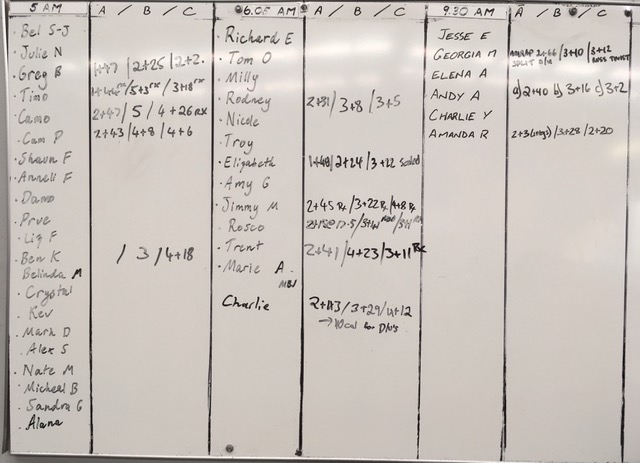 5 AM A / B / C 6.05 AM A / B / C 9.30 AM A / B / C
· Bel S-J
· Julie N
· Greg B 1+47 / 2+25 / 2+2.
· Timo 5+3 RX / 3+18 RX
· Camo 2+47 / 5 / 4+26 RX
· Cam P 2+43 / 4+8 / 4+6
· Shaun F
· Anneli F
· Damo
· Prue
· Liz F
· Ben K / 3 / 4+18
Belinda M
· Crystal
· Kev
· Mark D
· Alex S
· Nate M
· Micheal B
· Sandra G
· Alana
· Richard E
· Tom O
· Milly
· Rodney 2+31 / 3+8 / 3+5
· Nicole
· Troy
· Elizabeth 1+49 / 2+24 / 3+22 Scaled
· Amy G
· Jimmy M 2+45 Rx / 3+22 Rx / 4+8 Rx
· Rosco
· Trent 2+41 / 4+23 / 3+11 RX
· Marie A.
Charlie 2+13 / 3+29 / 4+12
→ 10 cal for D/U'S
JESSE E
GEORGIA M 2+66 / 3+10 / 3+12
ELENA A
ANDY A a) 2+40 b) 3+16 c) 3+2
CHARLIE Y
AMANDA R / 3+28 / 2+20